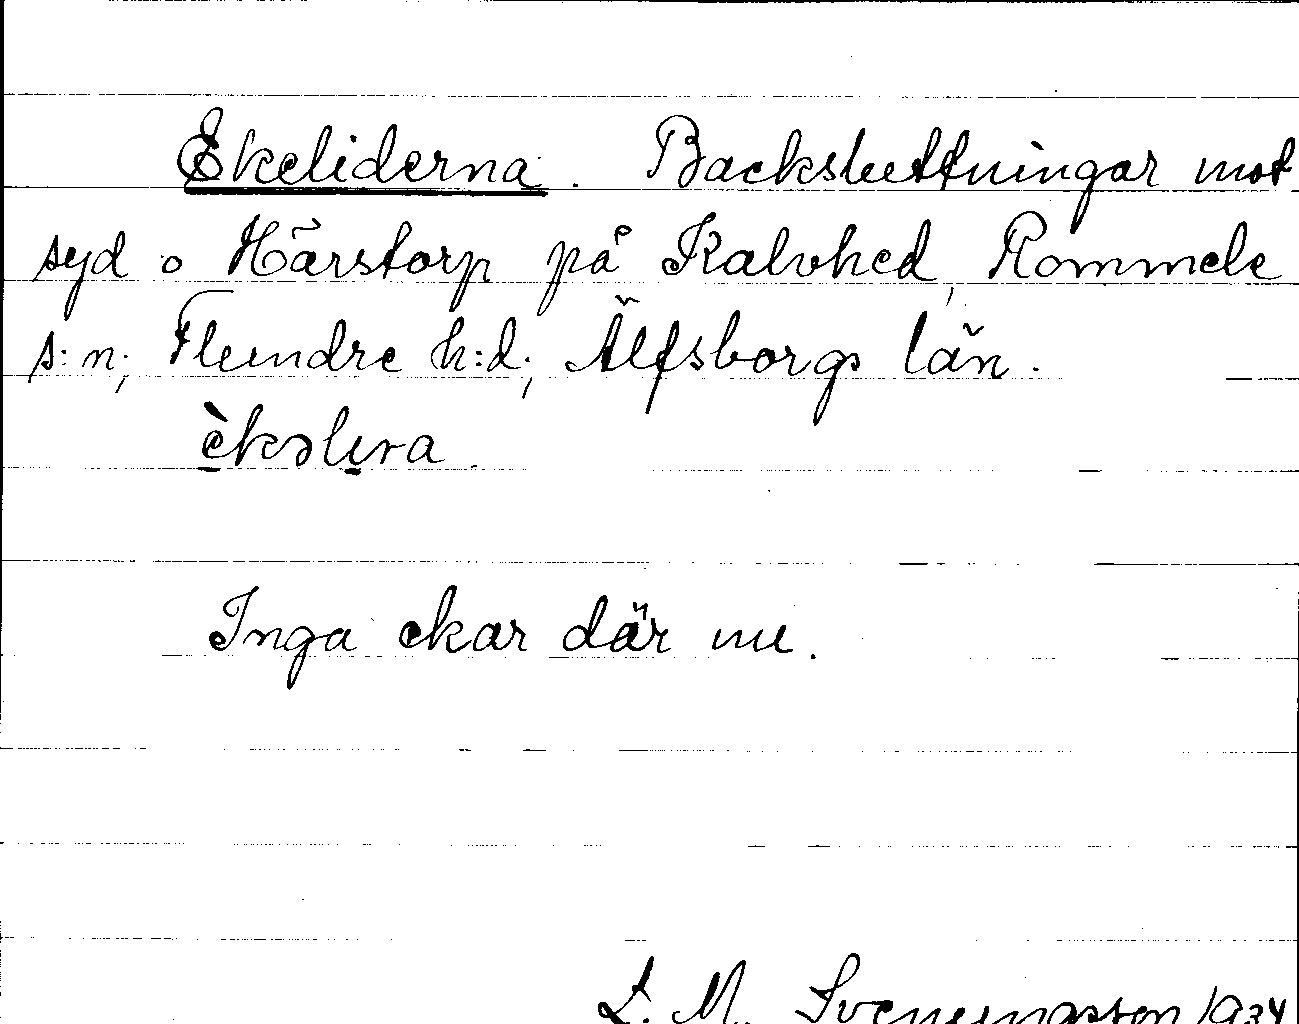 Ekeliderna. Backsluttningar mot
syd o Hårstorp på Kalvhed, Rommele
s:n; Flundre h:d; Älfsborgs län.
èkəlɩra
Inga ekar där nu.
S. M. Svenungsson 1934